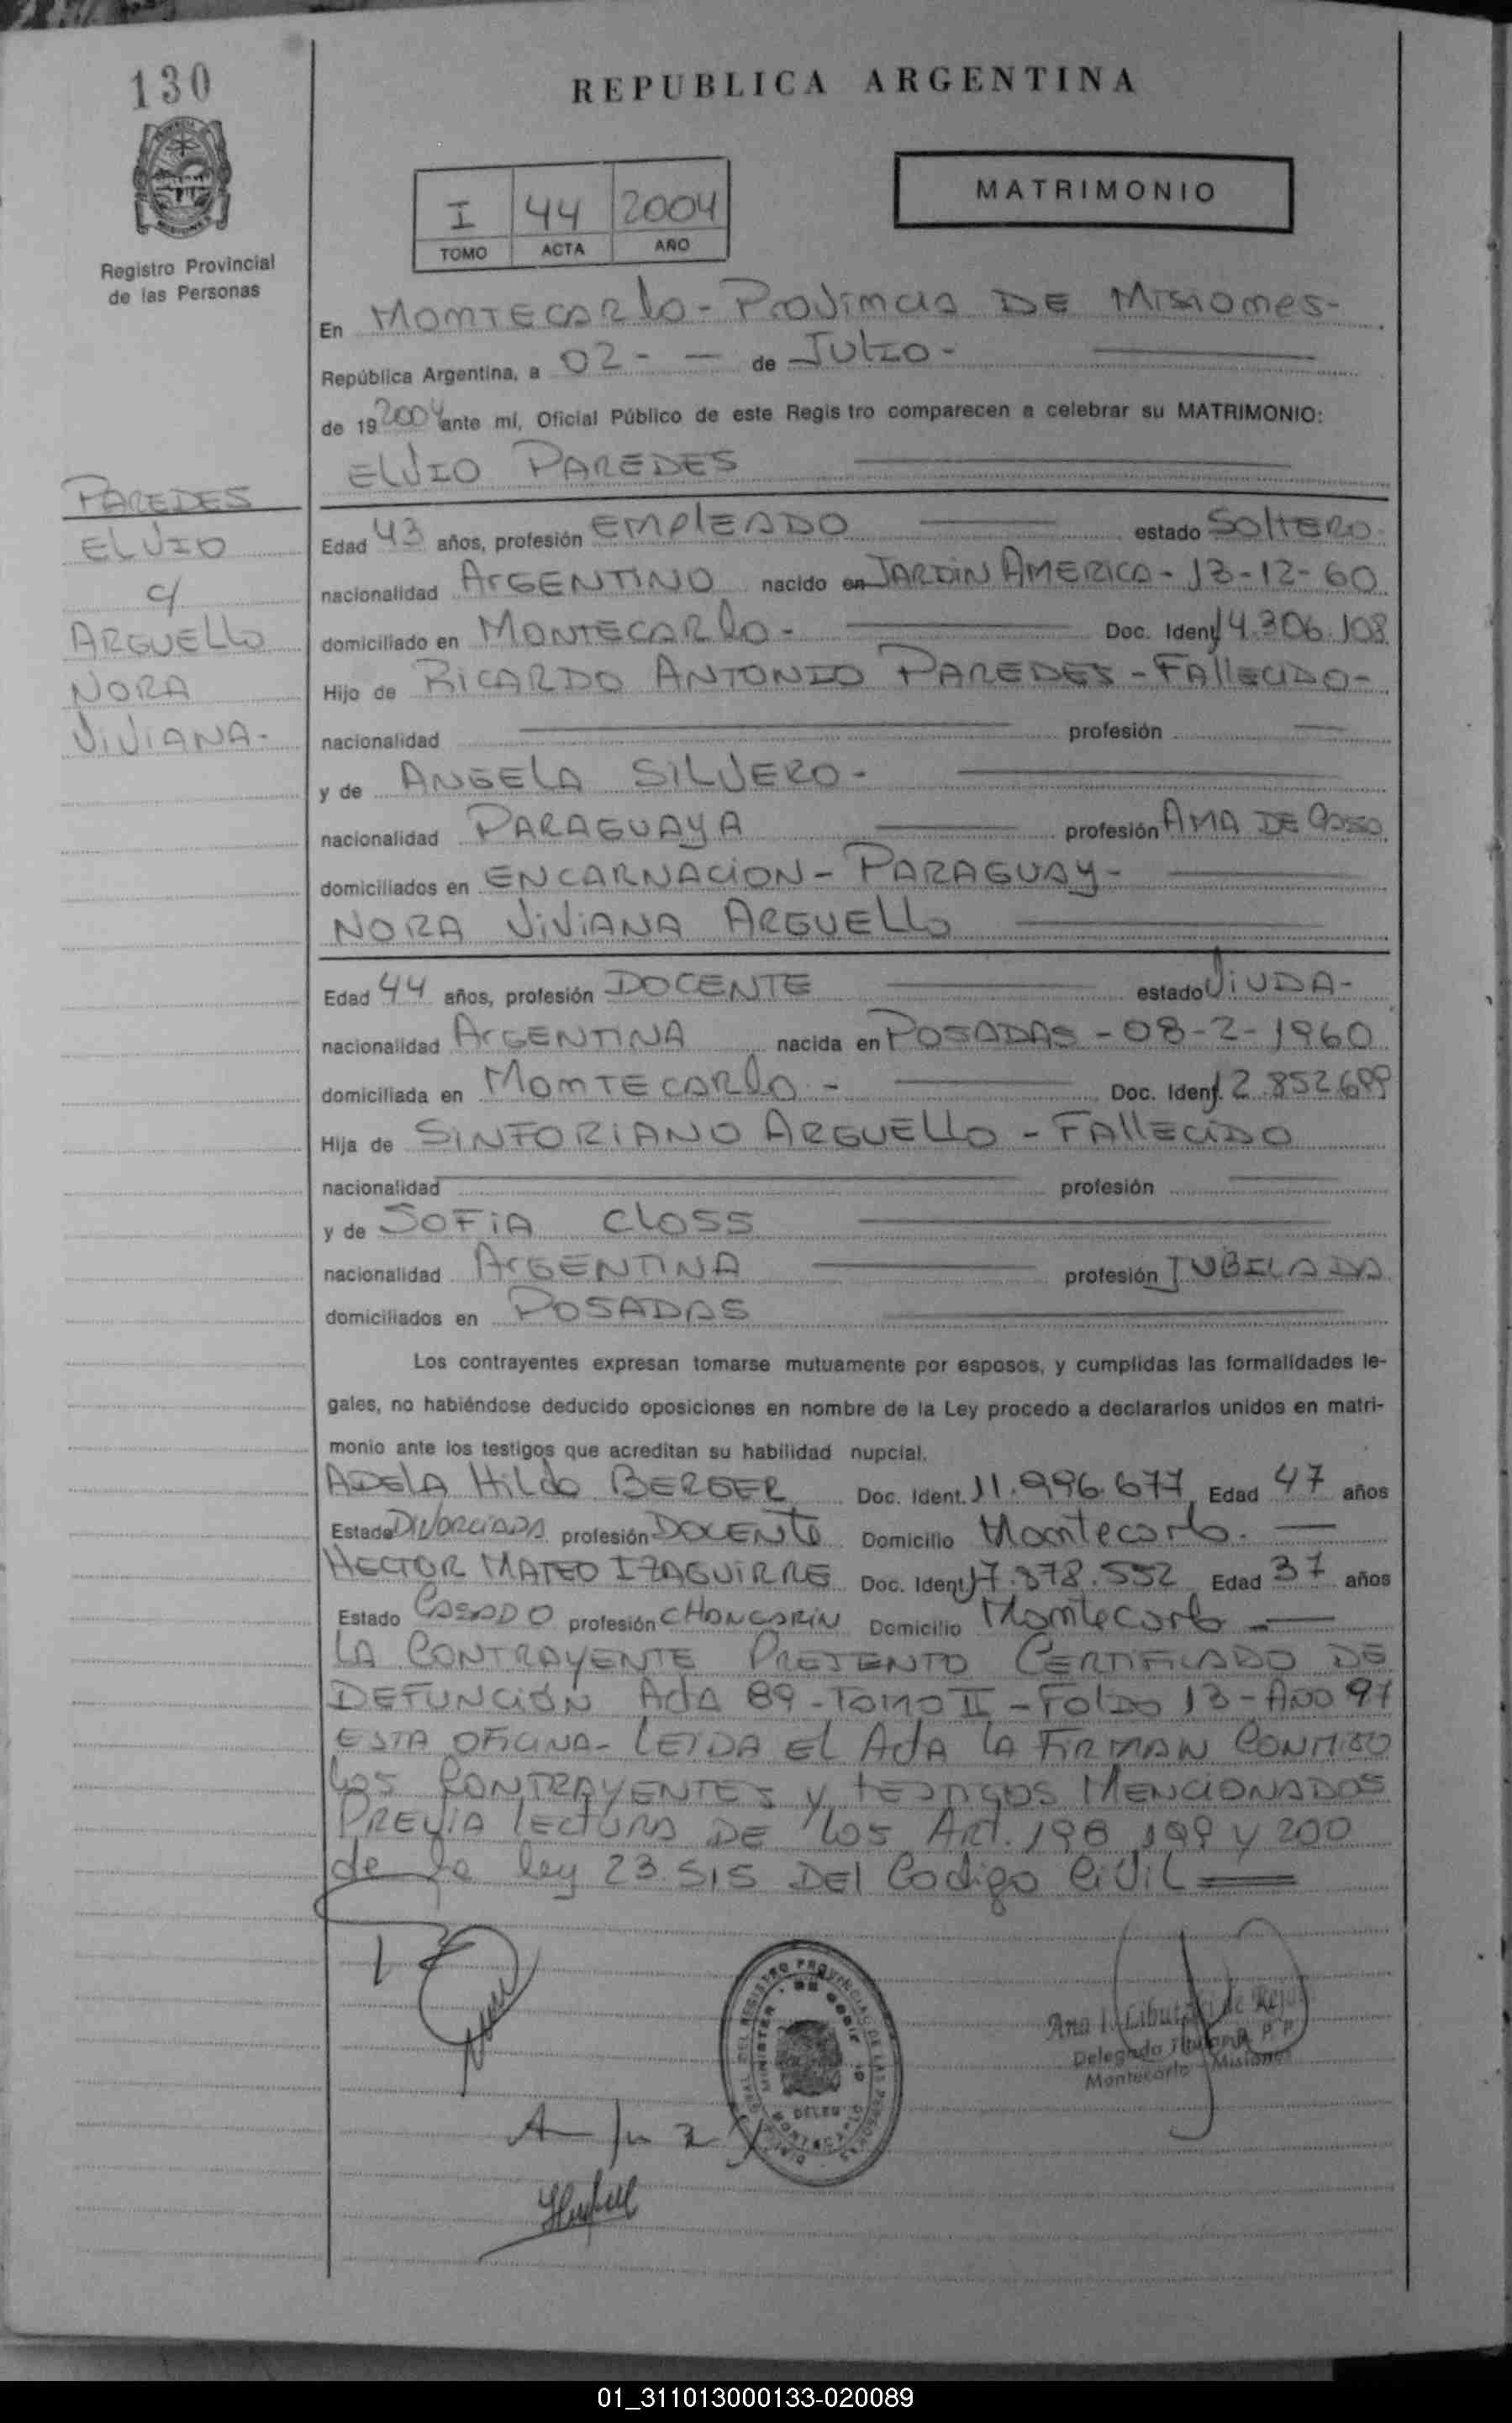 130
REPUBLICA ARGENTINA
MATRIMONIO
I 44 2004
TOMO ACTA AÑO
Registro Provincial
de las Personas
En MONTECARLO - Provincia DE Misiones-
República Argentina, a 02- - de JULIO -
de 19 2004 ante mí, Oficial Público de este Registro comparecen a celebrar su MATRIMONIO:
ELVIO PAREDES
PAREDES
ELVIO
c/
ARGUELLO
NORA
VIVIANA-
Edad 43 años, profesión EMPLEADO estado SOLTERO-
nacionalidad ARGENTINO nacido en JARDIN AMERICA - 13-12-60
domiciliado en MONTECARLO - Doc. Ident. 14.306.108
Hijo de RICARDO ANTONIO PAREDES - FALLECIDO-
nacionalidad profesión
y de ANGELA SILVERO -
nacionalidad PARAGUAYA profesión AMA DE CASA
domiciliados en ENCARNACION - PARAGUAY-
NORA VIVIANA ARGUELLO
Edad 44 años, profesión DOCENTE estado VIUDA-
nacionalidad ARGENTINA nacida en POSADAS - 08-2-1960
domiciliada en MONTECARLO - Doc. Ident. 12.852.699
Hija de SINFORIANO ARGUELLO - FALLECIDO
nacionalidad profesión
y de SOFIA CLOSS
nacionalidad ARGENTINA profesión JUBILADA
domiciliados en POSADAS
Los contrayentes expresan tomarse mutuamente por esposos, y cumplidas las formalidades le-
gales, no habiéndose deducido oposiciones en nombre de la Ley procedo a declararlos unidos en matri-
monio ante los testigos que acreditan su habilidad nupcial.
ADELA HILDA BERGER Doc. Ident. 11.996.677 Edad 47 años
Estado DIVORCIADA profesión DOCENTE Domicilio Montecarlo. -
HECTOR MATEO IZAGUIRRE Doc. Ident. 17.378.552 Edad 37 años
Estado CASADO profesión CHANGARIN Domicilio Montecarlo -
LA CONTRAYENTE PRESENTO CERTIFICADO DE
DEFUNCIÓN ACTA 89 - TOMO II - FOLIO 13 - AÑO 97
ESTA OFICINA - LEIDA EL ACTA LA FIRMAN CONMIGO
LOS CONTRAYENTES Y TESTIGOS MENCIONADOS
PREVIA LECTURA DE LOS ART. 198 199 y 200
de la ley 23.515 DEL Codigo CIVIL
Delegada Titular R. P. P.
Montecarlo - Misiones
01_311013000133-020089